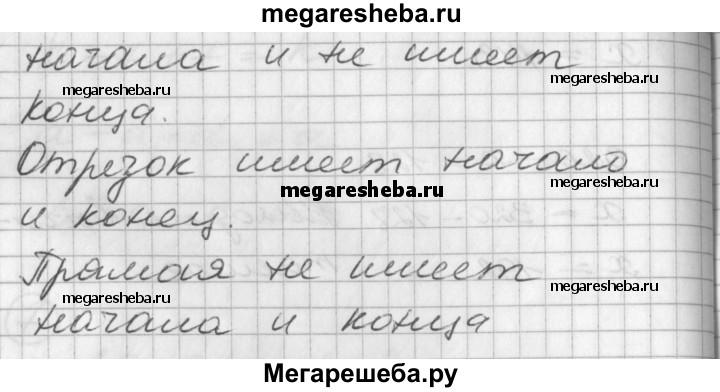 megaresheba.ru
начала и не имеет
megaresheba.ru megaresheba.ru
конца.
Отрезок имеет начало
megaresheba.ru
и конец.
Прямая не имеет
megaresheba.ru megaresheba.ru
начала и конца
Мегарешеба.ру